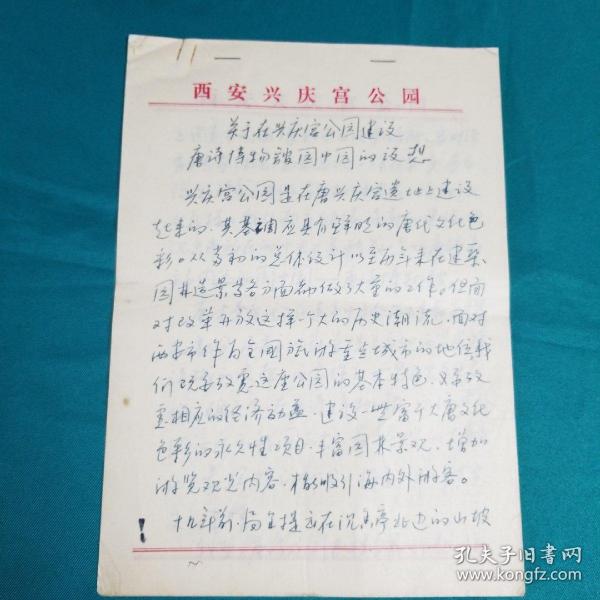 西安兴庆宫公园
关于在兴庆宫公园建设
唐诗博物馆园中园的设想
兴庆宫公园是在唐兴庆宫遗址上建设
起来的.其基调应具有鲜明的唐代文化色
彩。从当初的总体设计以至历年来在建筑、
园林造景等各方面都做了大量的工作。但面
对改革开放这样一个大的历史潮流,面对
西安市作为全国旅游重点城市的地位我
们既要改变这座公园的基本特色、又要改
变相应的经济效益.建设一些富于大唐文化
色彩的永久性项目.丰富园林景观、增加
游览观光内容、以吸引海内外游客。
十九年前.局主提出在沉香亭北边的山坡
孔夫子旧书网
www.kongfz.com